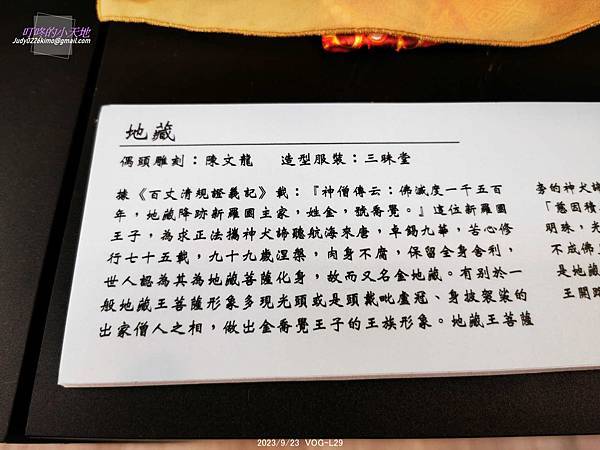 叮咚的小天地
Judy0226kimo@gmail.com
地藏
偶頭雕刻：陳文龍　造型服裝：三昧堂
據《百丈清規證義記》載：『神僧傳云：佛滅度一千五百
年，地藏降跡新羅國主家，姓金，號喬覺。』這位新羅國
王子，為求正法攜神犬諦聽航海來唐，卓錫九華，苦心修
行七十五載，九十九歲涅槃，肉身不腐，保留全身舍利，
世人認為其為地藏菩薩化身，故而又名金地藏。有別於一
般地藏王菩薩形象多現光頭或是頭戴毗盧冠、身披袈裟的
出家僧人之相，做出金喬覺王子的王族形象。地藏王菩薩
旁的神犬諦
「慈因積
明珠，光
不成佛
是地藏
王開
2023/9/23 VOG-L29